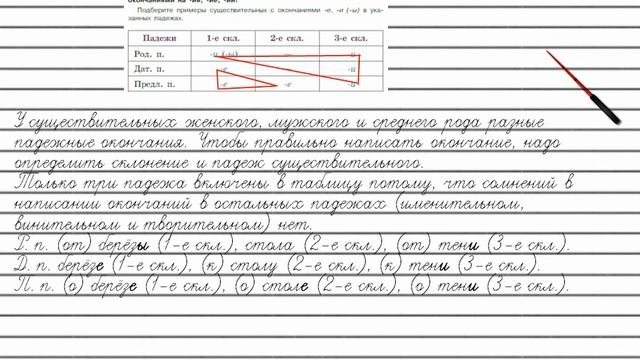 окончаниями на -ия, -ие, -ий.
Подберите примеры существительных с окончаниями -е, -и (-ы) в ука-
занных падежах.
Падежи 1-е скл. 2-е скл. 3-е скл.
Род. п. -и (-ы) — -и
Дат. п. -е -и
Предл. п. -е -е -и
У существительных женского, мужского и среднего рода разные
падежные окончания. Чтобы правильно написать окончание, надо
определить склонение и падеж существительного.
Только три падежа включены в таблицу потому, что сомнений в
написании окончаний в остальных падежах (именительном,
винительном и творительном) нет.
Р. п. (от) берёзы (1-е скл.), стола (2-е скл.), (от) тени (3-е скл.).
Д. п. берёзе (1-е скл.), (к) столу (2-е скл.), (к) тени (3-е скл.).
П. п. (о) берёзе (1-е скл.), (о) столе (2-е скл.), (о) тени (3-е скл.).